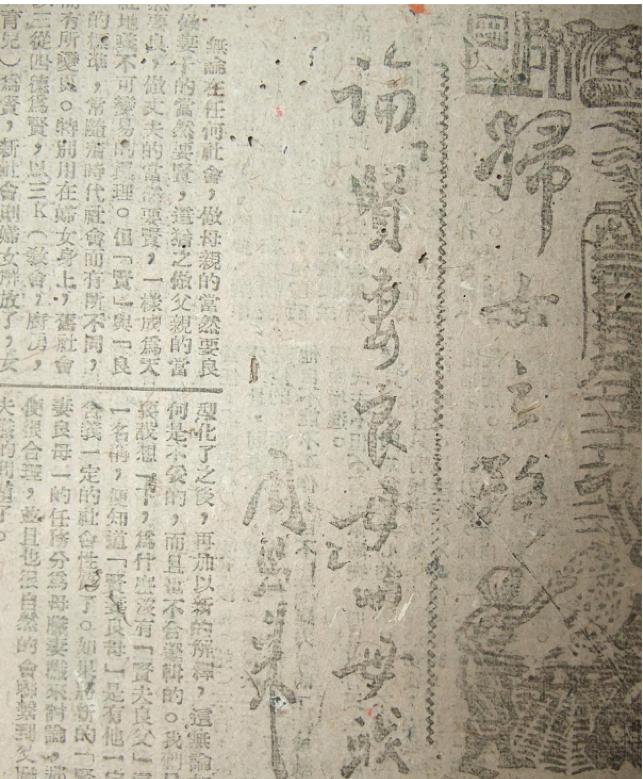 婦女之路
論「賢妻良母」與母職
周恩來
無論在任何社會，做母親的當然要良
，做妻子的當然要賢，這猶之做父親的當
然要良，做丈夫的當然要賢，一樣成爲天
經地義不可變易的眞理。但「賢」與「良
的標準，常隨着時代社會而有所不同，
而有所變。特別用在婦女身上，舊社會
以三從四德爲賢，以三K（教會，廚房，
育兒）爲賢，新社會則婦女解放了，女
型化了之後，再加以新的解釋，這無論
何是不妥的，而且也不合邏輯的。我們只
要設想一下，爲什麽沒有「賢夫良父」這
一名稱，便知道「賢妻良母」是有他一定
含義一定的社會性質了。如果將新的「賢
妻良母」的任務分爲母職妻職來討論，那
便很合理，並且也很自然的會聯繫到父職
夫職的問題了。